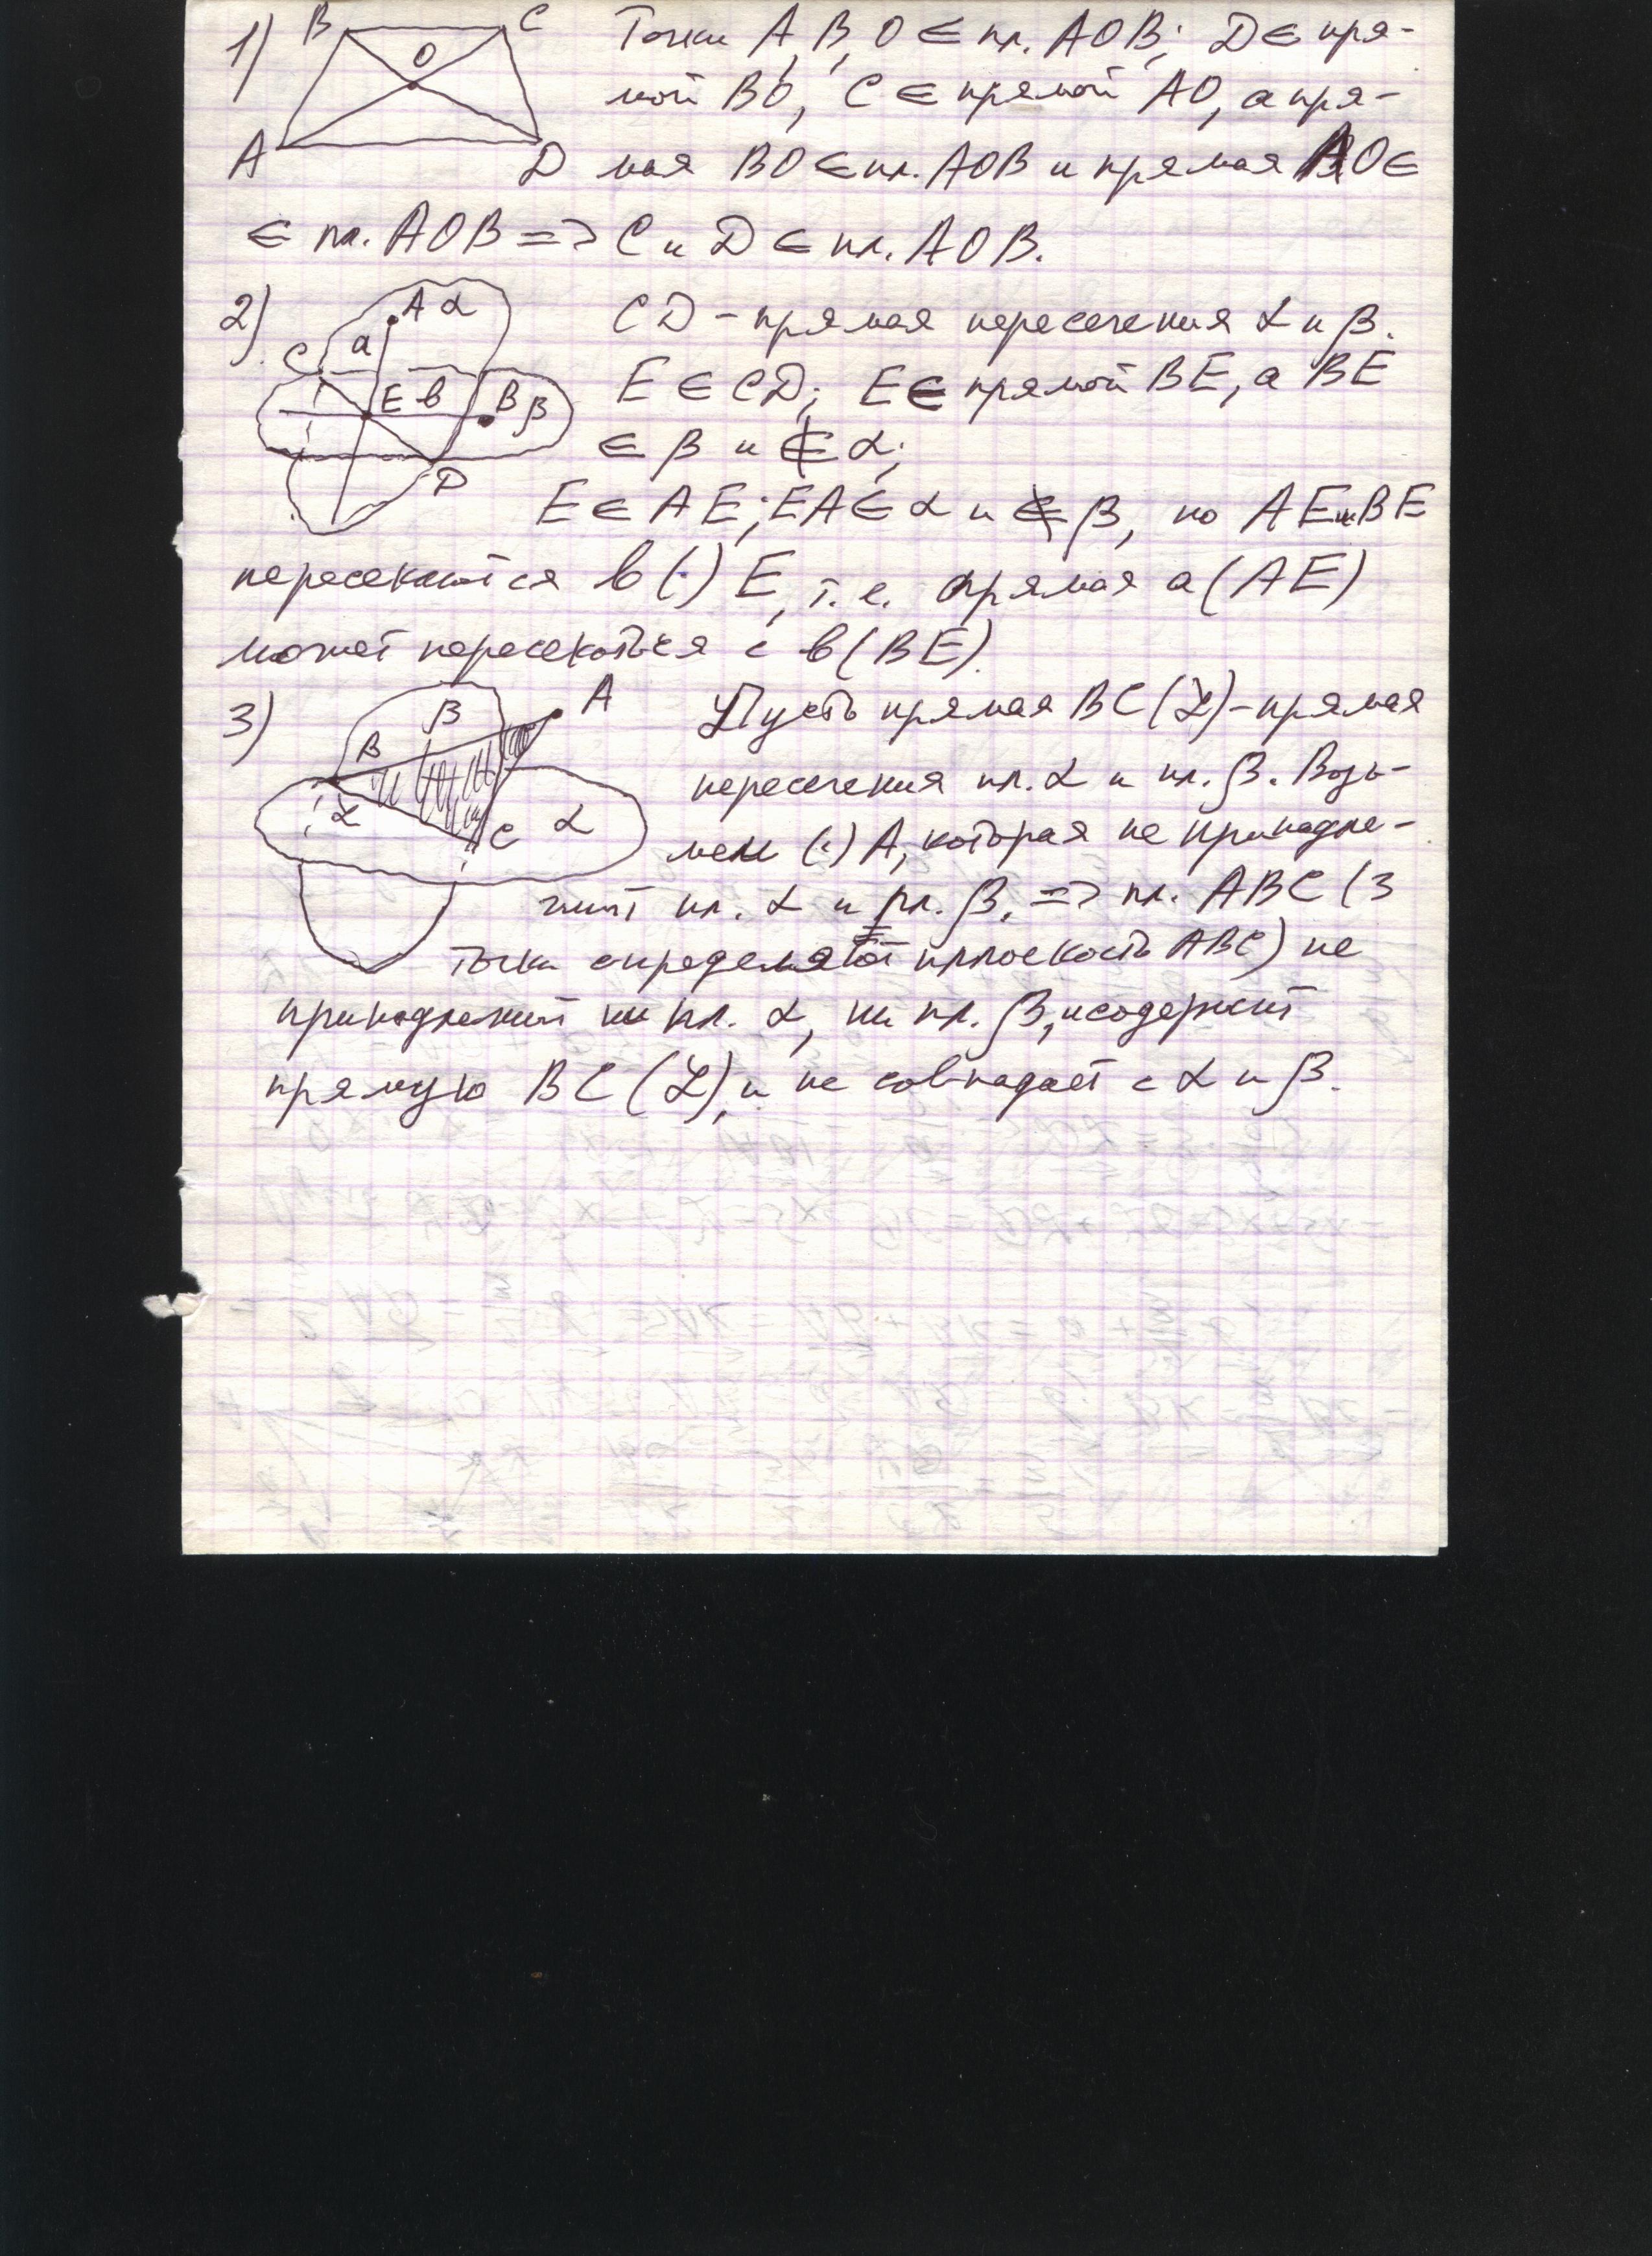 1) B C O A D Точки A, B, O ∈ пл. AOB; D ∈ пря-
мой BO, C ∈ прямой AO, а пря-
мая BO ∈ пл. AOB и прямая AO ∈
∈ пл. AOB => C и D ∈ пл. AOB.
2) A α a C E в B β D CD - прямая пересечения α и β.
E ∈ CD; E ∈ прямой BE, а BE
∈ β и ∉ α;
E ∈ AE; EA ∈ α и ∉ β, но AE и BE
пересекаются в (·) E, т. е. прямая a (AE)
может пересекаться с в (BE).
3) β A B L C α Пусть прямая BC (L) - прямая
пересечения пл. α и пл. β. Возь-
мем (·) A, которая не принадле-
жит пл. α и пл. β, => пл. ABC (3
точки определяют плоскость ABC) не
принадлежит ни пл. α, ни пл. β, и содержит
прямую BC (L), и не совпадает с α и β.